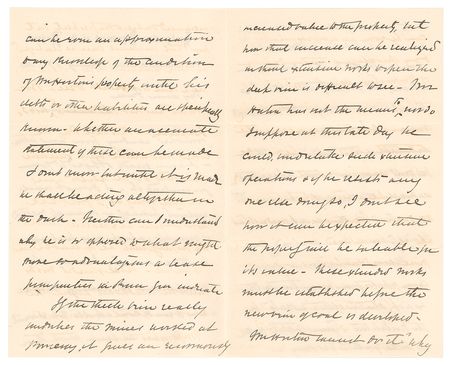 can be even an approximation
to any knowledge of the condition
of Mr Horton's property until his
debts or other liabilities are specifically
known - Whether an accurate
statement of these can be made
I don't know but until it is made
he shall be acting altogether in
the dark - Neither can I understand
why he is so opposed to what might
prove so advantageous a lease
properties as Dunn
If the thick vein really
underlies the mines worked at
it gives an enormously
increased value to the property, but
how that increase can be realized
without extensive works to open the
vein is difficult to see - Mr
Horton has not the means to, nor do
I suppose at this late day he
could, undertake such
operations & if he resists any
one else doing so, I don't see
how it can be expected that
the property will be saleable for
its value - These extended works
must be established before the
new vein of coal is developed -
Mr Horton cannot do it & why